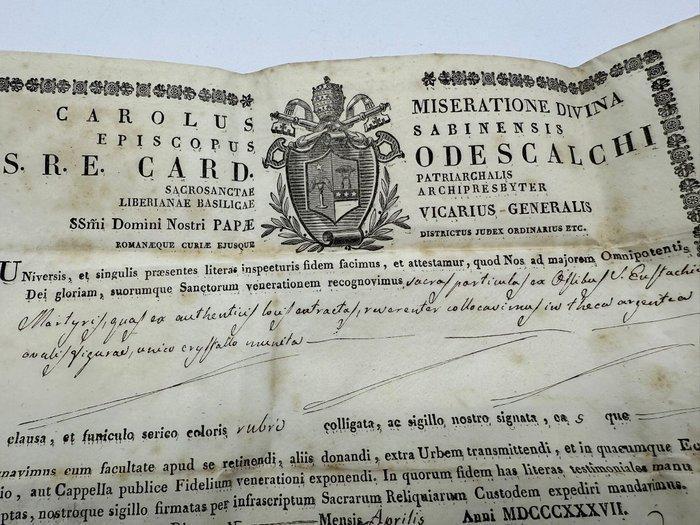 CAROLUS MISERATIONE DIVINA
EPISCOPUS SABINENSIS
S. R. E. CARD. ODESCALCHI
SACROSANCTAE PATRIARCHALIS
LIBERIANAE BASILICAE ARCHIPRESBYTER
SSm̃i Domini Nostri PAPÆ VICARIUS GENERALIS
ROMANÆQUE CURIÆ EJUSQUE DISTRICTUS JUDEX ORDINARIUS ETC.
Universis, et singulis præsentes literas inspecturis fidem facimus, et attestamur, quod Nos ad majorem Omnipotentis
Dei gloriam, suorumque Sanctorum venerationem recognovimus sacras particulas ex Ossibus S. Eustachii
Martyris, quas ex authenticis locis extractas, reverenter collocavimus in theca argentea
ovalis figurae, unico crystallo munita
clausa, et funiculo serico coloris rubri colligata, ac sigillo nostro signata, ea s que
cum facultate apud se retinendi, aliis donandi, extra Urbem transmittendi, et in quacumque
aut Cappella publice Fidelium venerationi exponendi. In quorum fidem has literas testimoniales manu
nostroque sigillo firmatas per infrascriptum Sacrarum Reliquiarum Custodem expediri mandavimus.
Mensis Aprilis Anni MDCCCXXXVII.